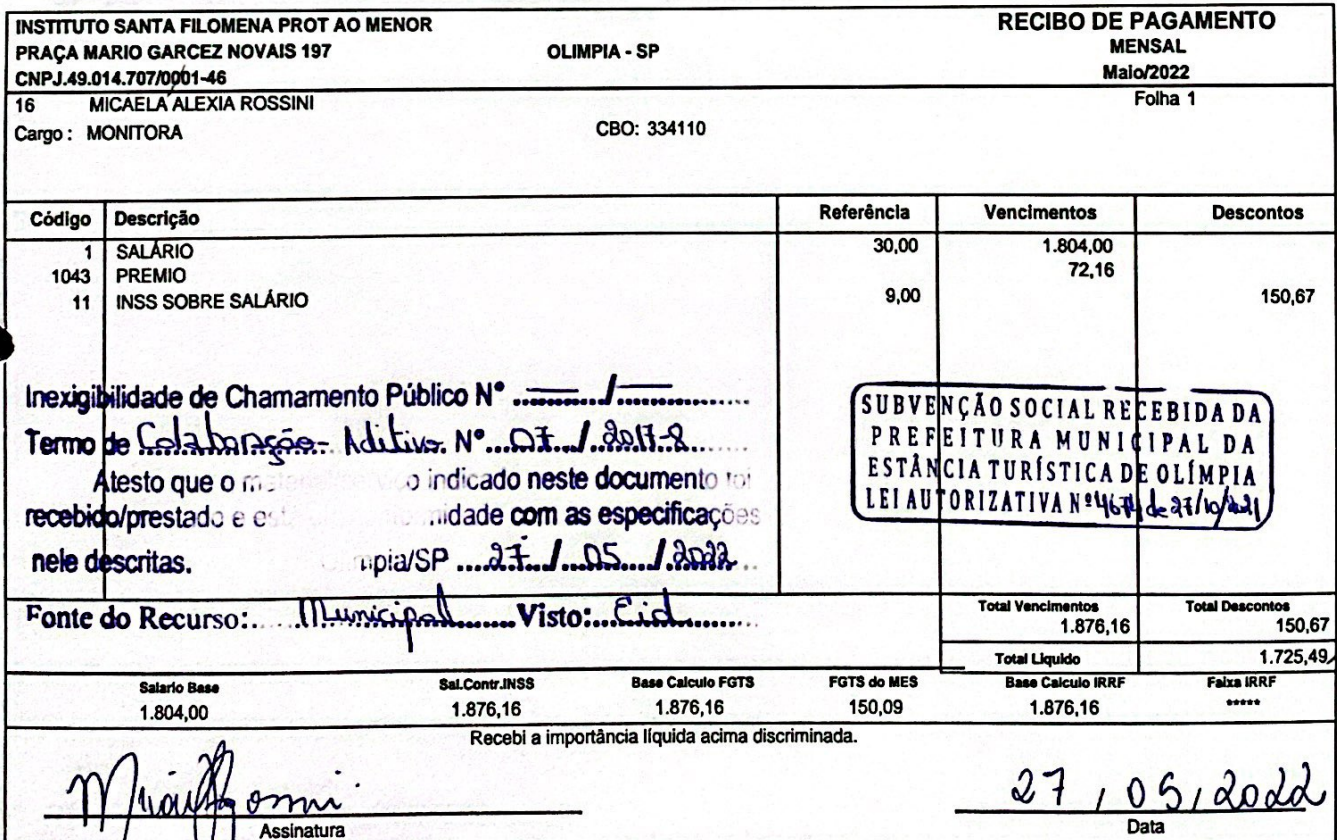 INSTITUTO SANTA FILOMENA PROT AO MENOR
PRAÇA MARIO GARCEZ NOVAIS 197 OLIMPIA - SP
CNPJ.49.014.707/0001-46
RECIBO DE PAGAMENTO
MENSAL
Maio/2022
16 MICAELA ALEXIA ROSSINI Folha 1
Cargo : MONITORA CBO: 334110
Código Descrição Referência Vencimentos Descontos
1 SALÁRIO 30,00 1.804,00
1043 PREMIO 72,16
11 INSS SOBRE SALÁRIO 9,00 150,67
Inexigibilidade de Chamamento Público Nº ...../.....
Termo de Colaboração - Aditivo. Nº 07 / 2017-8
Atesto que o indicado neste documento foi
recebido/prestado e com as especificações
nele descritas. 27 / 05 / 2022
SUBVENÇÃO SOCIAL RECEBIDA DA
PREFEITURA MUNICIPAL DA
ESTÂNCIA TURÍSTICA DE OLÍMPIA
LEI AUTORIZATIVA Nº 4674 de 27/10/2021
Fonte do Recurso: Municipal Visto: Cid
Total Vencimentos Total Descontos
1.876,16 150,67
Total Liquido 1.725,49
Salario Base Sal.Contr.INSS Base Calculo FGTS FGTS do MES Base Calculo IRRF Faixa IRRF
1.804,00 1.876,16 1.876,16 150,09 1.876,16 *****
Recebi a importância líquida acima discriminada.
27 / 05 / 2022
Assinatura Data